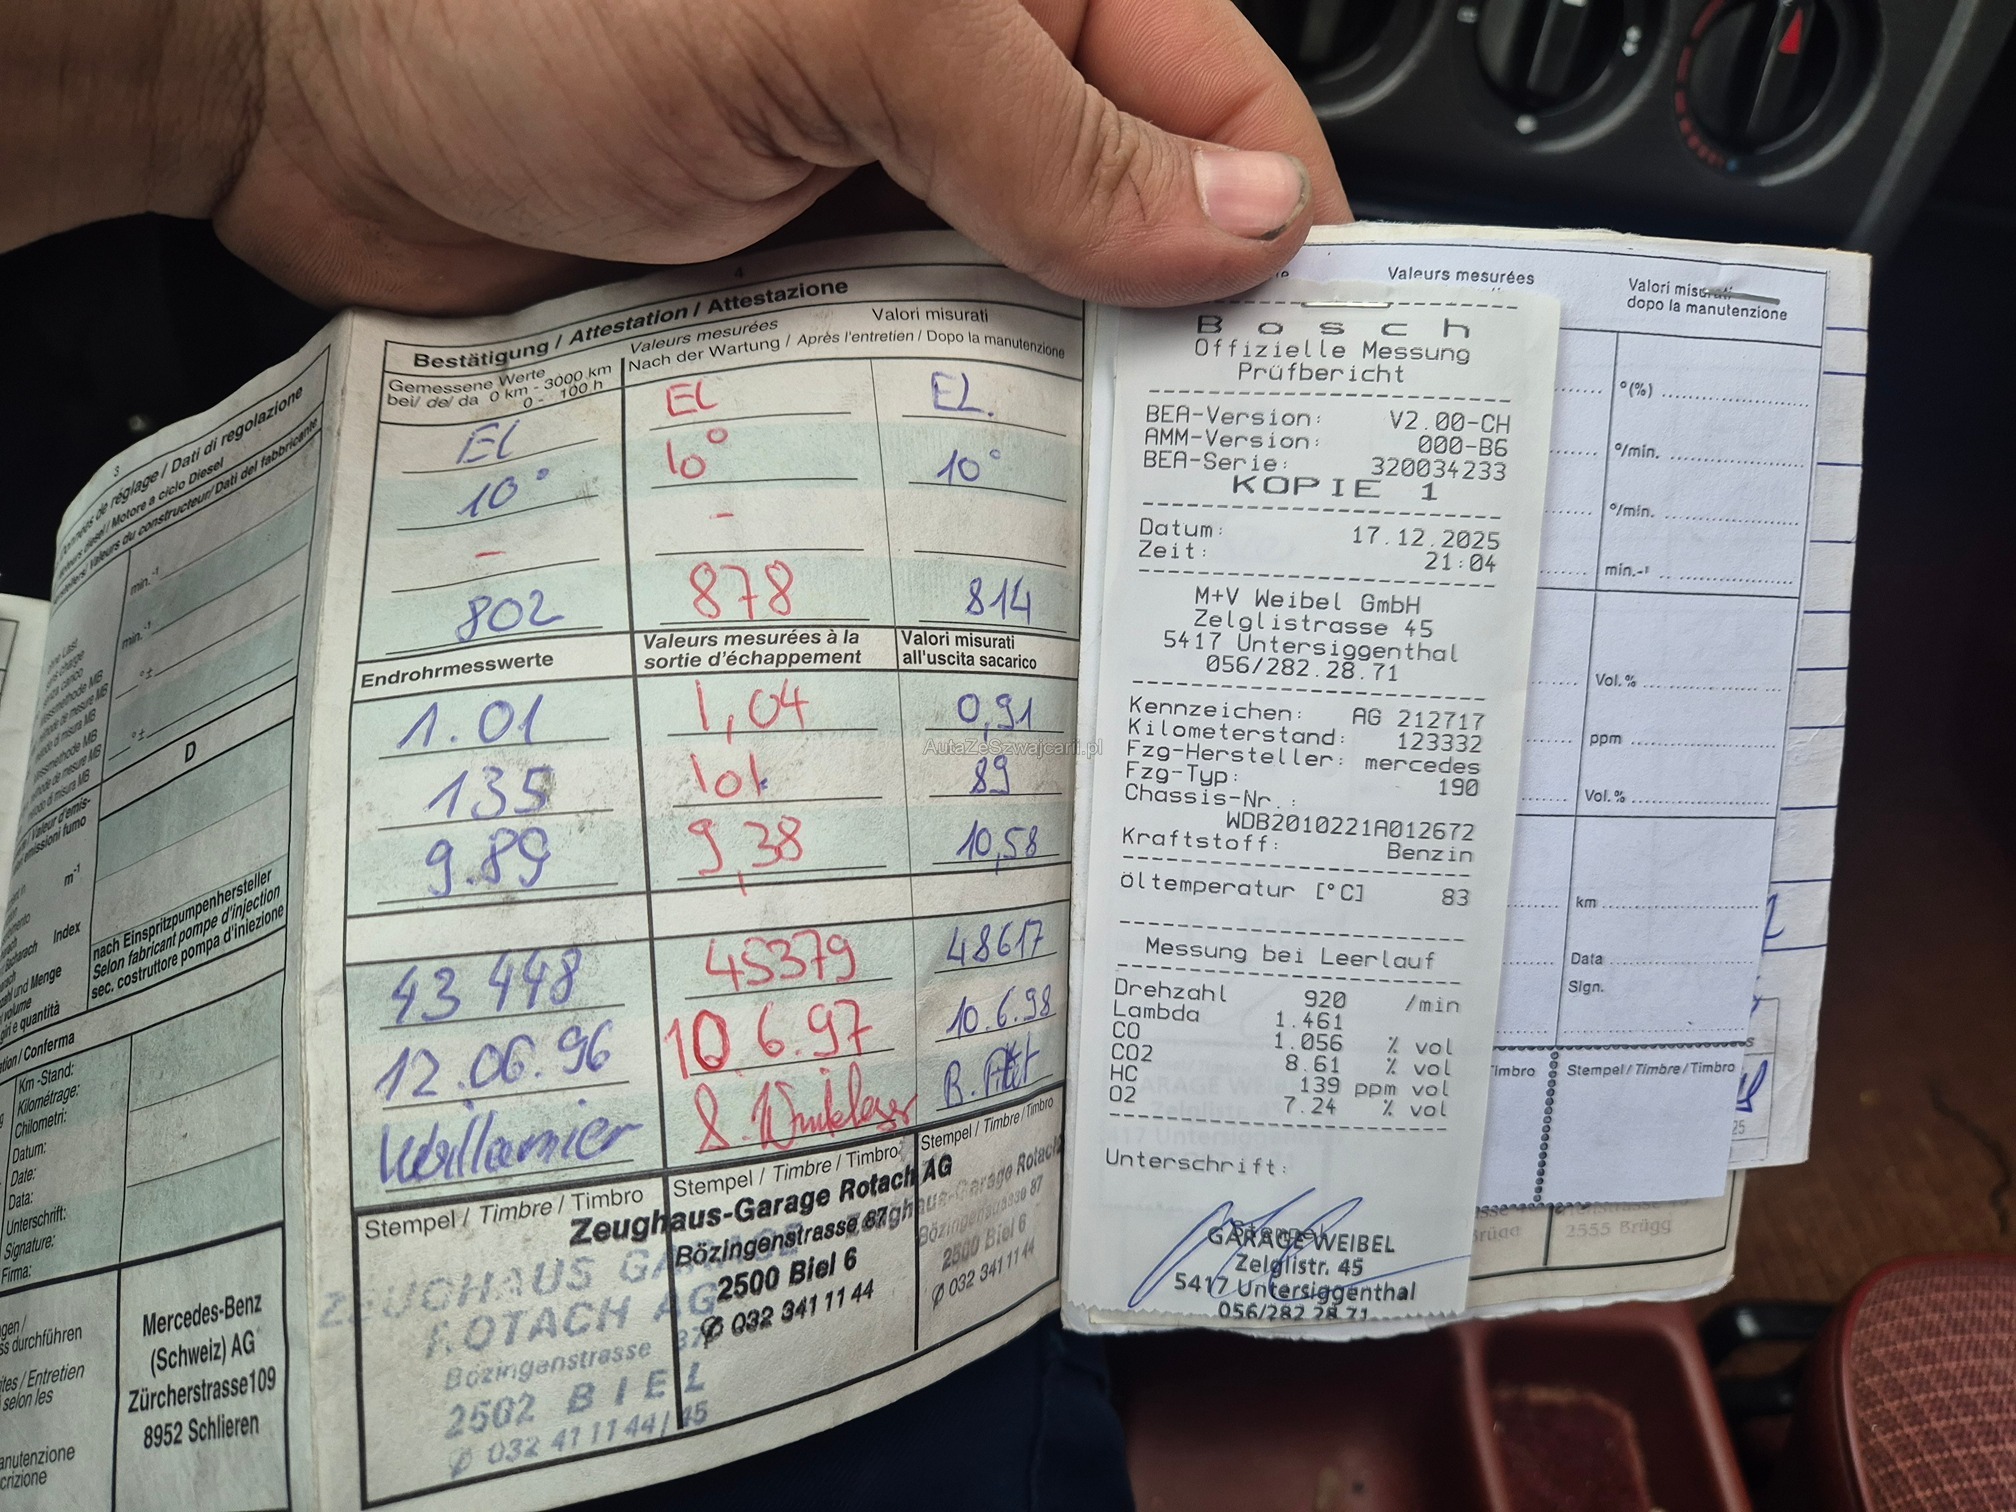 3
données de réglage / Dati di regolazione
diesel / Motore a ciclo Diesel
du constructeur/Dati del fabbricante
min.⁻¹
min.⁻¹
D
m⁻¹
Index
nach Einspritzpumpenhersteller
Selon fabricant pompe d'injection
sec. costruttore pompa d'iniezione
/ Conferma
Km-Stand:
Kilométrage:
Chilometri:
Datum:
Date:
Data:
Unterschrift:
Signature:
Firma:
Mercedes-Benz
(Schweiz) AG
Zürcherstrasse109
8952 Schlieren
4
Bestätigung / Attestation / Attestazione
Gemessene Werte
bei/ de/ da 0 km - 3000 km
0 - 100 h
Valeurs mesurées
Valori misurati
Nach der Wartung / Après l'entretien / Dopo la manutenzione
EL EL EL.
10° 10° 10°
- -
802 878 814
Endrohrmesswerte
Valeurs mesurées à la
sortie d'échappement
Valori misurati
all'uscita sacarico
1.01 1,04 0,91
135 101 89
9.89 9,38 10,58
43 448 45379 48617
12.06.96 10.6.97 10.6.98
Stempel / Timbre / Timbro
Stempel / Timbre / Timbro
Stempel / Timbre / Timbro
ZEUGHAUS GARAGE
ROTACH AG
Bözingenstrasse 87
2502 BIEL
✆ 032 41 11 44 / 45
Zeughaus-Garage Rotach AG
Bözingenstrasse 87
2500 Biel 6
✆ 032 341 11 44
Zeughaus-Garage Rotach
Bözingenstrasse 87
2500 Biel 6
✆ 032 341 11 44
AutaZeSzwajcarii.pl
Bosch
Offizielle Messung
Prüfbericht
BEA-Version: V2.00-CH
AMM-Version: 000-B6
BEA-Serie: 320034233
KOPIE 1
Datum: 17.12.2025
Zeit: 21:04
M+V Weibel GmbH
Zelglistrasse 45
5417 Untersiggenthal
056/282.28.71
Kennzeichen: AG 212717
Kilometerstand: 123332
Fzg-Hersteller: mercedes
Fzg-Typ: 190
Chassis-Nr.:
WDB2010221A012672
Kraftstoff: Benzin
Öltemperatur [°C] 83
Messung bei Leerlauf
Drehzahl 920 /min
Lambda 1.461
CO 1.056 % vol
CO2 8.61 % vol
HC 139 ppm vol
O2 7.24 % vol
Unterschrift:
Stempel
GARAGE WEIBEL
Zelglistr. 45
5417 Untersiggenthal
056/282 28 71
Valeurs mesurées
Valori misurati
dopo la manutenzione
°(%)
°/min.
°/min.
min.-¹
Vol.%
ppm
Vol.%
km
Data
Sign.
Timbro
Stempel / Timbre / Timbro
2555 Brügg
25